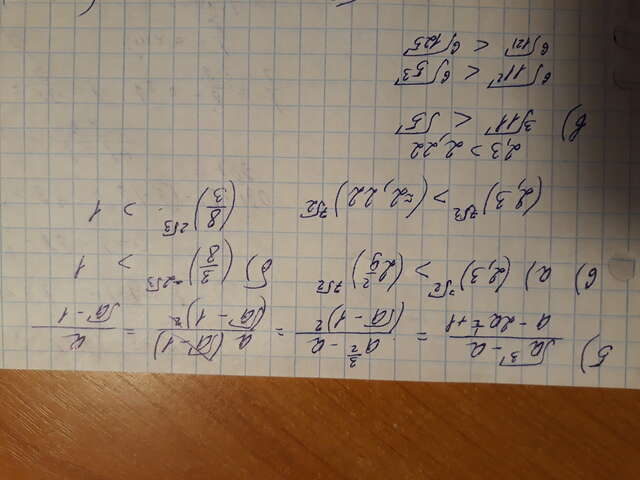 5) √a³ - a / a - 2a^½ + 1 = a^(3/2) - a / (√a - 1)² = a(√a - 1) / (√a - 1)² = a / √a - 1
6) а) (2,3)^7√2 > (2 2/9)^7√2
(2,3)^7√2 > (2,22)^7√2
2,3 > 2,22
б) (3/8)^-2√3 > 1
(8/3)^2√3 > 1
в) ³√11 < √5
⁶√11² < ⁶√5³
⁶√121 < ⁶√125